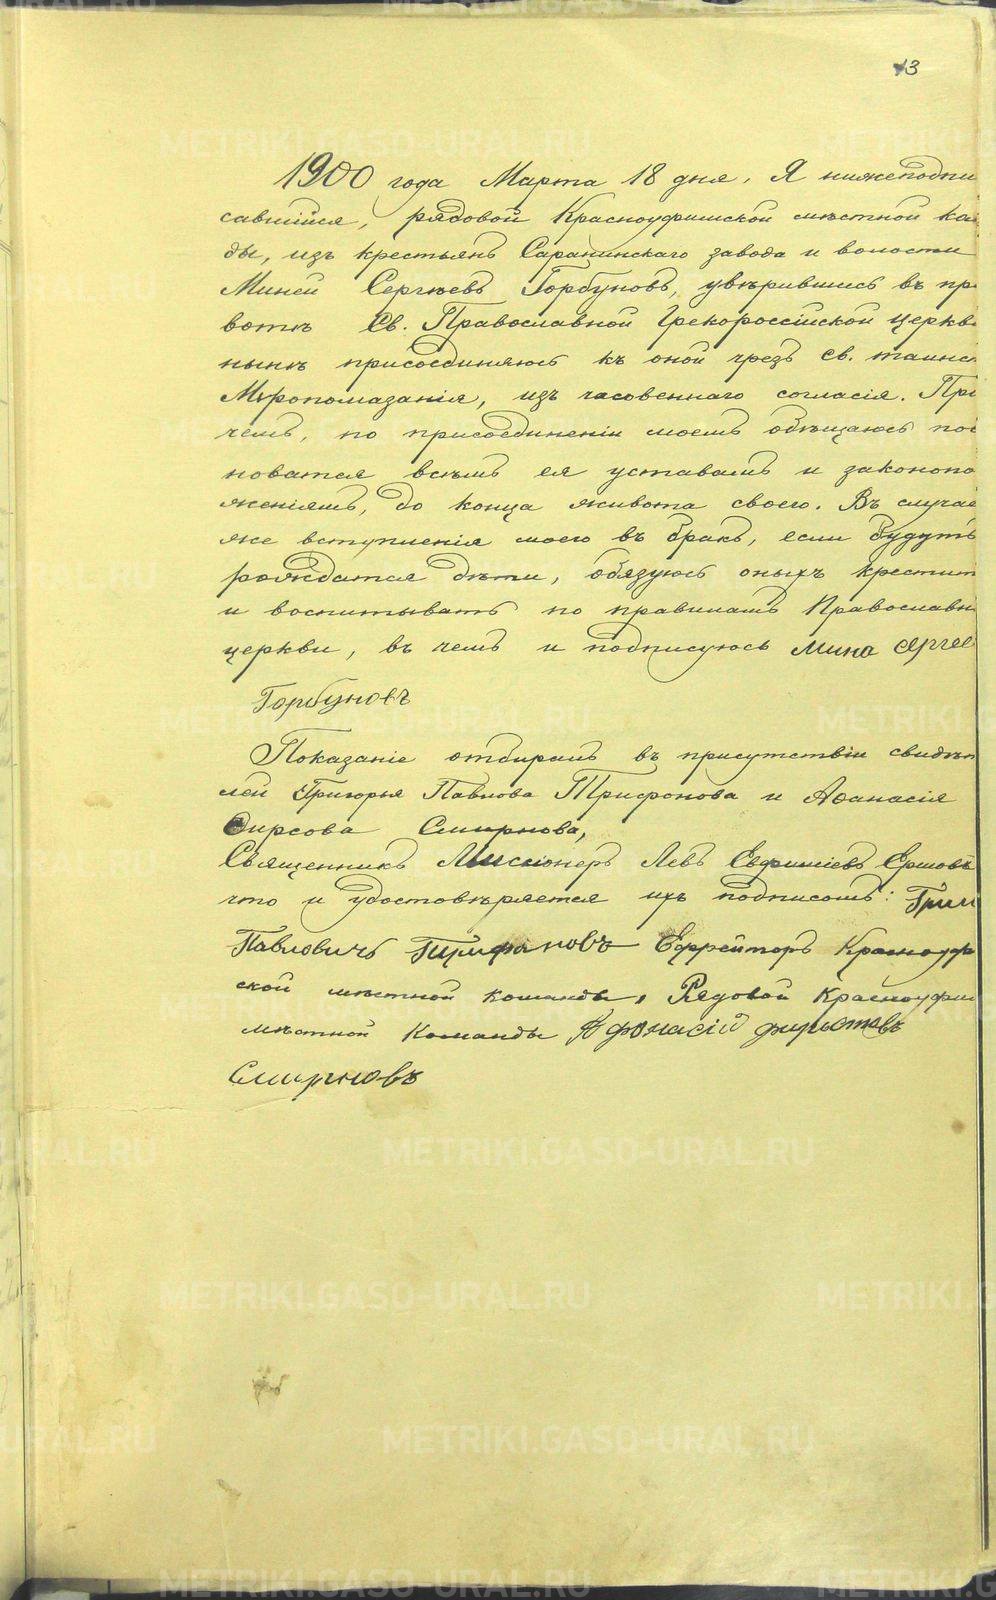 13
1900 года Марта 18 дня. Я нижеподпи
савшійся, рядовой Красноуфимской мѣстной ко
ды, изъ крестьянъ Саранинскаго завода и волости
Миней Сергѣевъ Горбуновъ, увѣрившись въ пр
вотѣ Св. Православной Грекороссійской церкв
нынѣ присоединяюсь къ оной чрезъ св. таинс
Мѵропомазанія, изъ часовеннаго согласія. При
чемъ, по присоединеніи моемъ обѣщаюсь пов
новатся всѣмъ ея уставамъ и законопо
женіямъ, до конца живота своего. Въ случаѣ
же вступленія моего въ бракъ, если будутъ
рождатся дѣти, обязуюсь оныхъ крестит
и воспитывать по правиламъ Православн
церкви, въ чемъ и подписуюсь Мина Сергее
Горбуновъ
Показаніе отбиралъ въ присутствіи свидѣт
лей Григорья Павлова Трифонова и Аѳанасія
Ѳирсова Смирнова,
Священникъ Миссіонеръ Левъ Евфиміевъ Ершовъ
что и удостовѣряется ихъ подписомъ: Григ
Павловичъ Трифановъ Ефрейторъ Красноуф
ской мѣстной команды, Рядовой Красноуфим
мѣстной Команды Афонасій фирстовъ
Смирновъ
METRIKI.GASO-URAL.RU